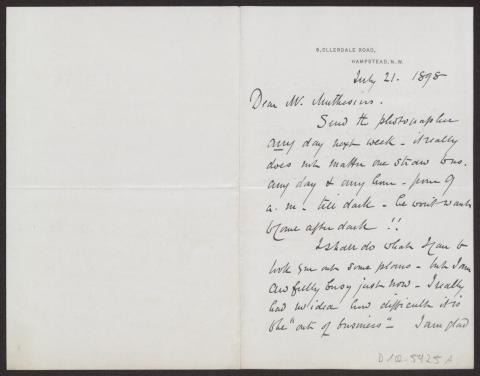 6, ELLERDALE ROAD,
HAMPSTEAD, N.W.
July 21. 1898
Dear Mr. Muthesius.
Send the photographer
any day next week - it really
does not matter one straw
any day & any hour - from 9
a.m - till dark - he won't want
to come after dark !!
I shall do what I can to
look you out some plans - but I am
awfully busy just now - I really
had no idea how difficult it is
to be "out of business" - I am glad
D 102-5425 A